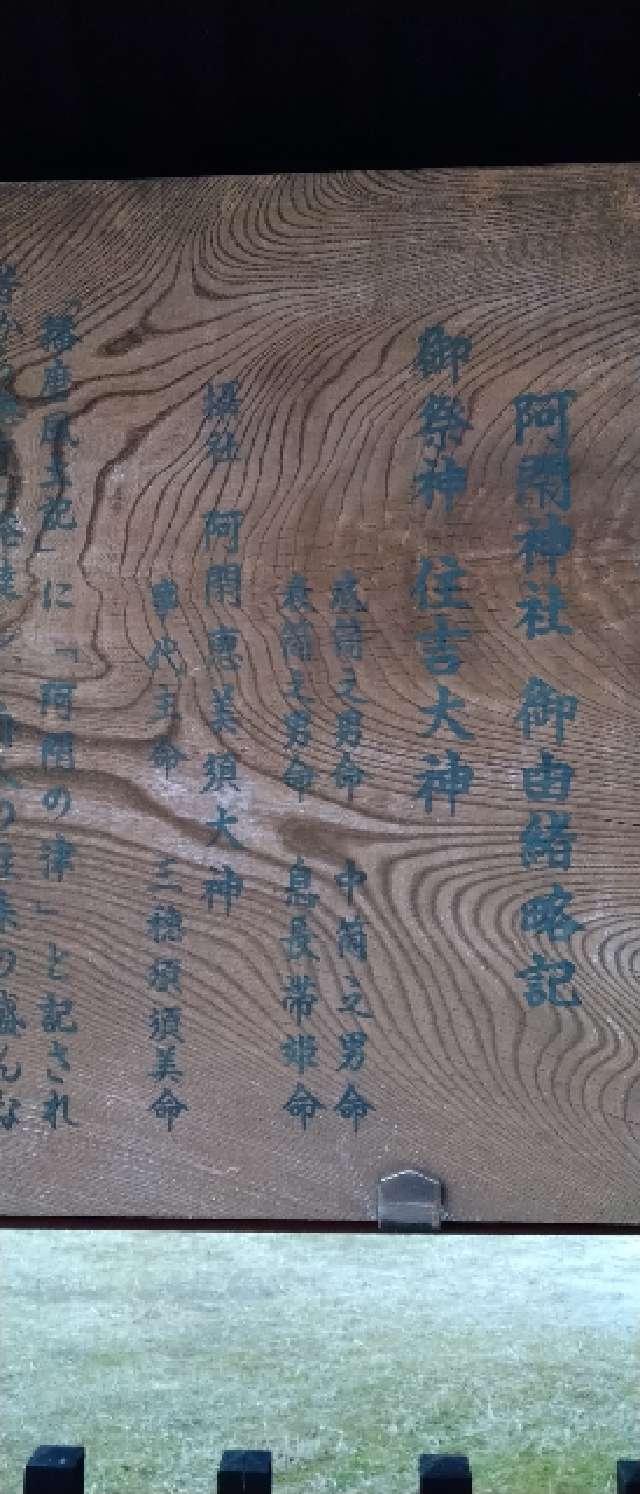 阿閇神社 御由緒略記
御祭神 住吉大神
底筒之男命 中筒之男命
表筒之男命 息長帯姫命
摂社 阿閇恵美須大神
事代主命 三穂須須美命
「播磨風土記」に「阿閇の津」と記され
の往来の盛んな